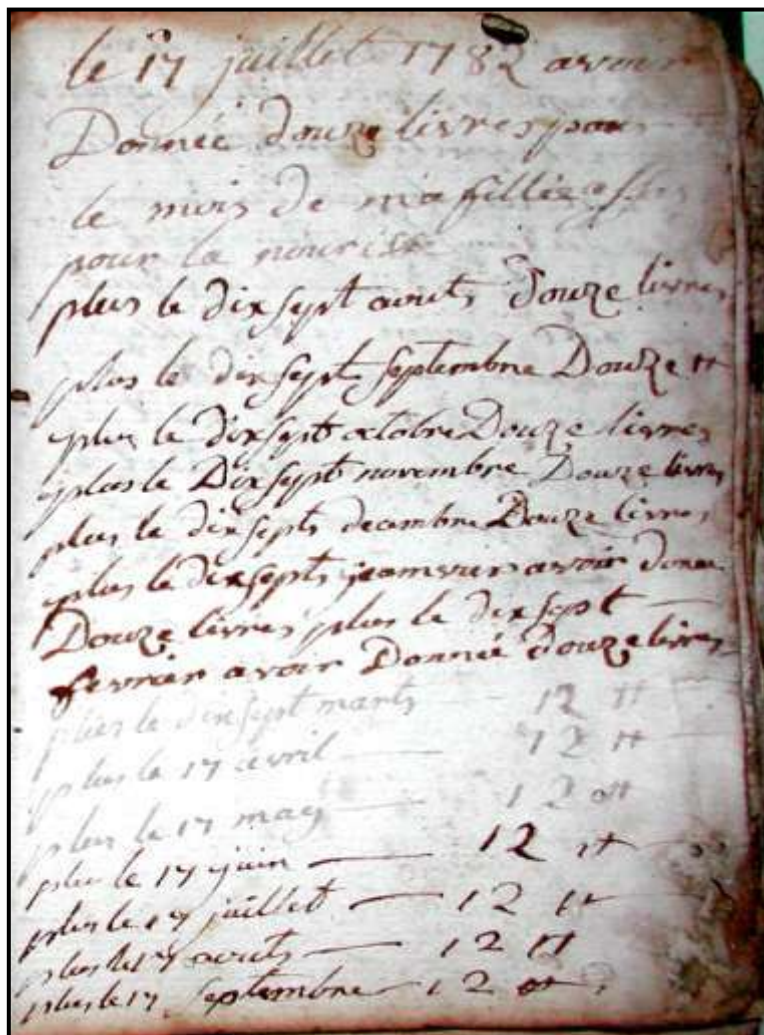 le 17 juillet 1782 avoir
Donnée douze livres pour
le mois de ma fillie
pour la nourise
plus le dix sept aouts douze livres
plus le dix sept septembre Douze tt
plus le dix sept octobre Douze livres
plus le Dix sept novembre Douze livres
plus le dix septs decembre Douze livres
plus le dix septs jeamvier avoir donné
Douze livres plus le dix sept
fevrier avoir Donnée douze livres
plus le dix sept marts 12 tt
plus le 17 avril 12 tt
plus le 17 may 12 tt
plus le 17 juin 12 tt
plus le 17 juillet 12 tt
plus le 17 aouts 12 tt
plus le 17 septembre 12 tt